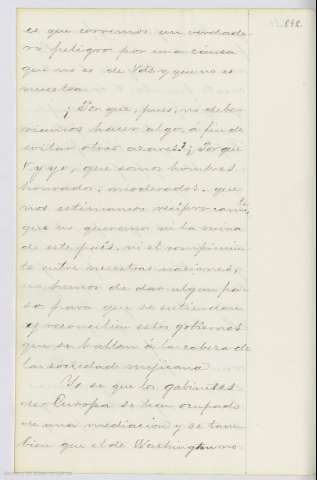 292.
ce que corremos un verdade-
ro peligro por una causa
que no es de Vds. y que no es
nuestra.
¿Por qué, pues, no debe-
riamos hacer algo, á fin de
evitar otros azares? ¿Porque
V. y yo, que somos hombres
honrados, moderados, que
nos estimamos reciprocamte,
que no queremos ni la ruina
de este país, ni el rompimien-
to entre nuestras naciones,
no hemos de dar algun pa-
so para que se entiendan
y reconcilien estos gobiernos
que se hallan á la cabeza de
la sociedad mejicana
Yo se que los gabinetes
de Europa se han ocupado
de una mediacion y se tam-
bien que el de Washington no